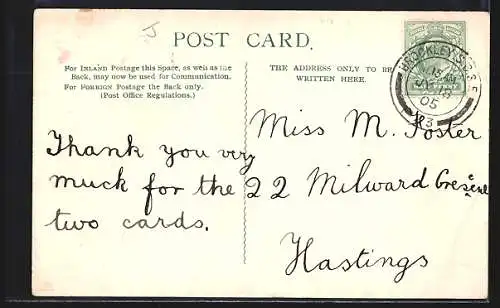 POST CARD.
For INLAND Postage this Space, as well as the
Back, may now be used for Communication.
For FOREIGN Postage the Back only.
(Post Office Regulations.)
THE ADDRESS ONLY TO BE
WRITTEN HERE.
BROCKLEY S.O. S.E
05
Thank you very
much for the
two cards.
Miss M. Foster
22 Milward Crescent
Hastings